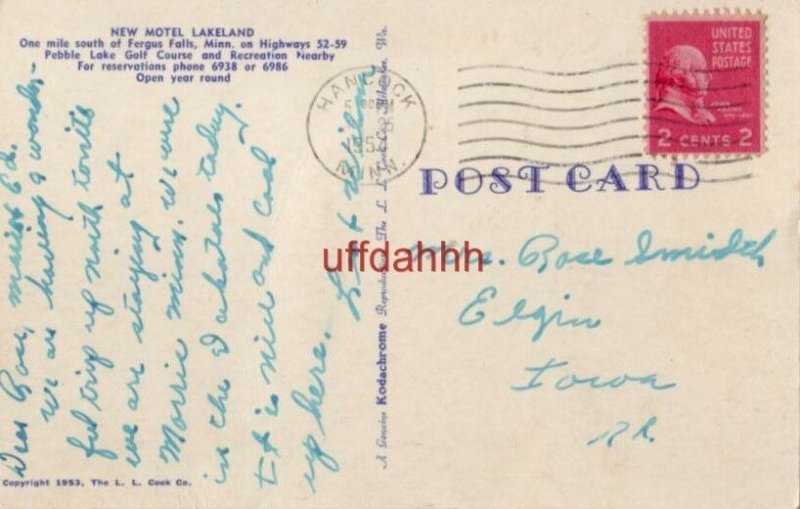 NEW MOTEL LAKELAND
One mile south of Fergus Falls, Minn. on Highways 52-59
Pebble Lake Golf Course and Recreation Nearby
For reservations phone 6938 or 6986
Open year round
Dear Rose, & Ed.
we are having a wonder-
ful trip up north tonite
we are staying at
Morris Minn. we were
in the Dakotas today.
It is nice and cool
up here.
Wilson
Copyright 1953, The L. L. Cook Co.
A Genuine Kodachrome Reproduction by The L. L. Cook Co., Milwaukee, Wis.
HANCOCK
MINN.
UNITED
STATES
POSTAGE
JOHN ADAMS
2 CENTS 2
POST CARD
uffdahhh
Mrs. Rose
Elgin
Iowa
RR.